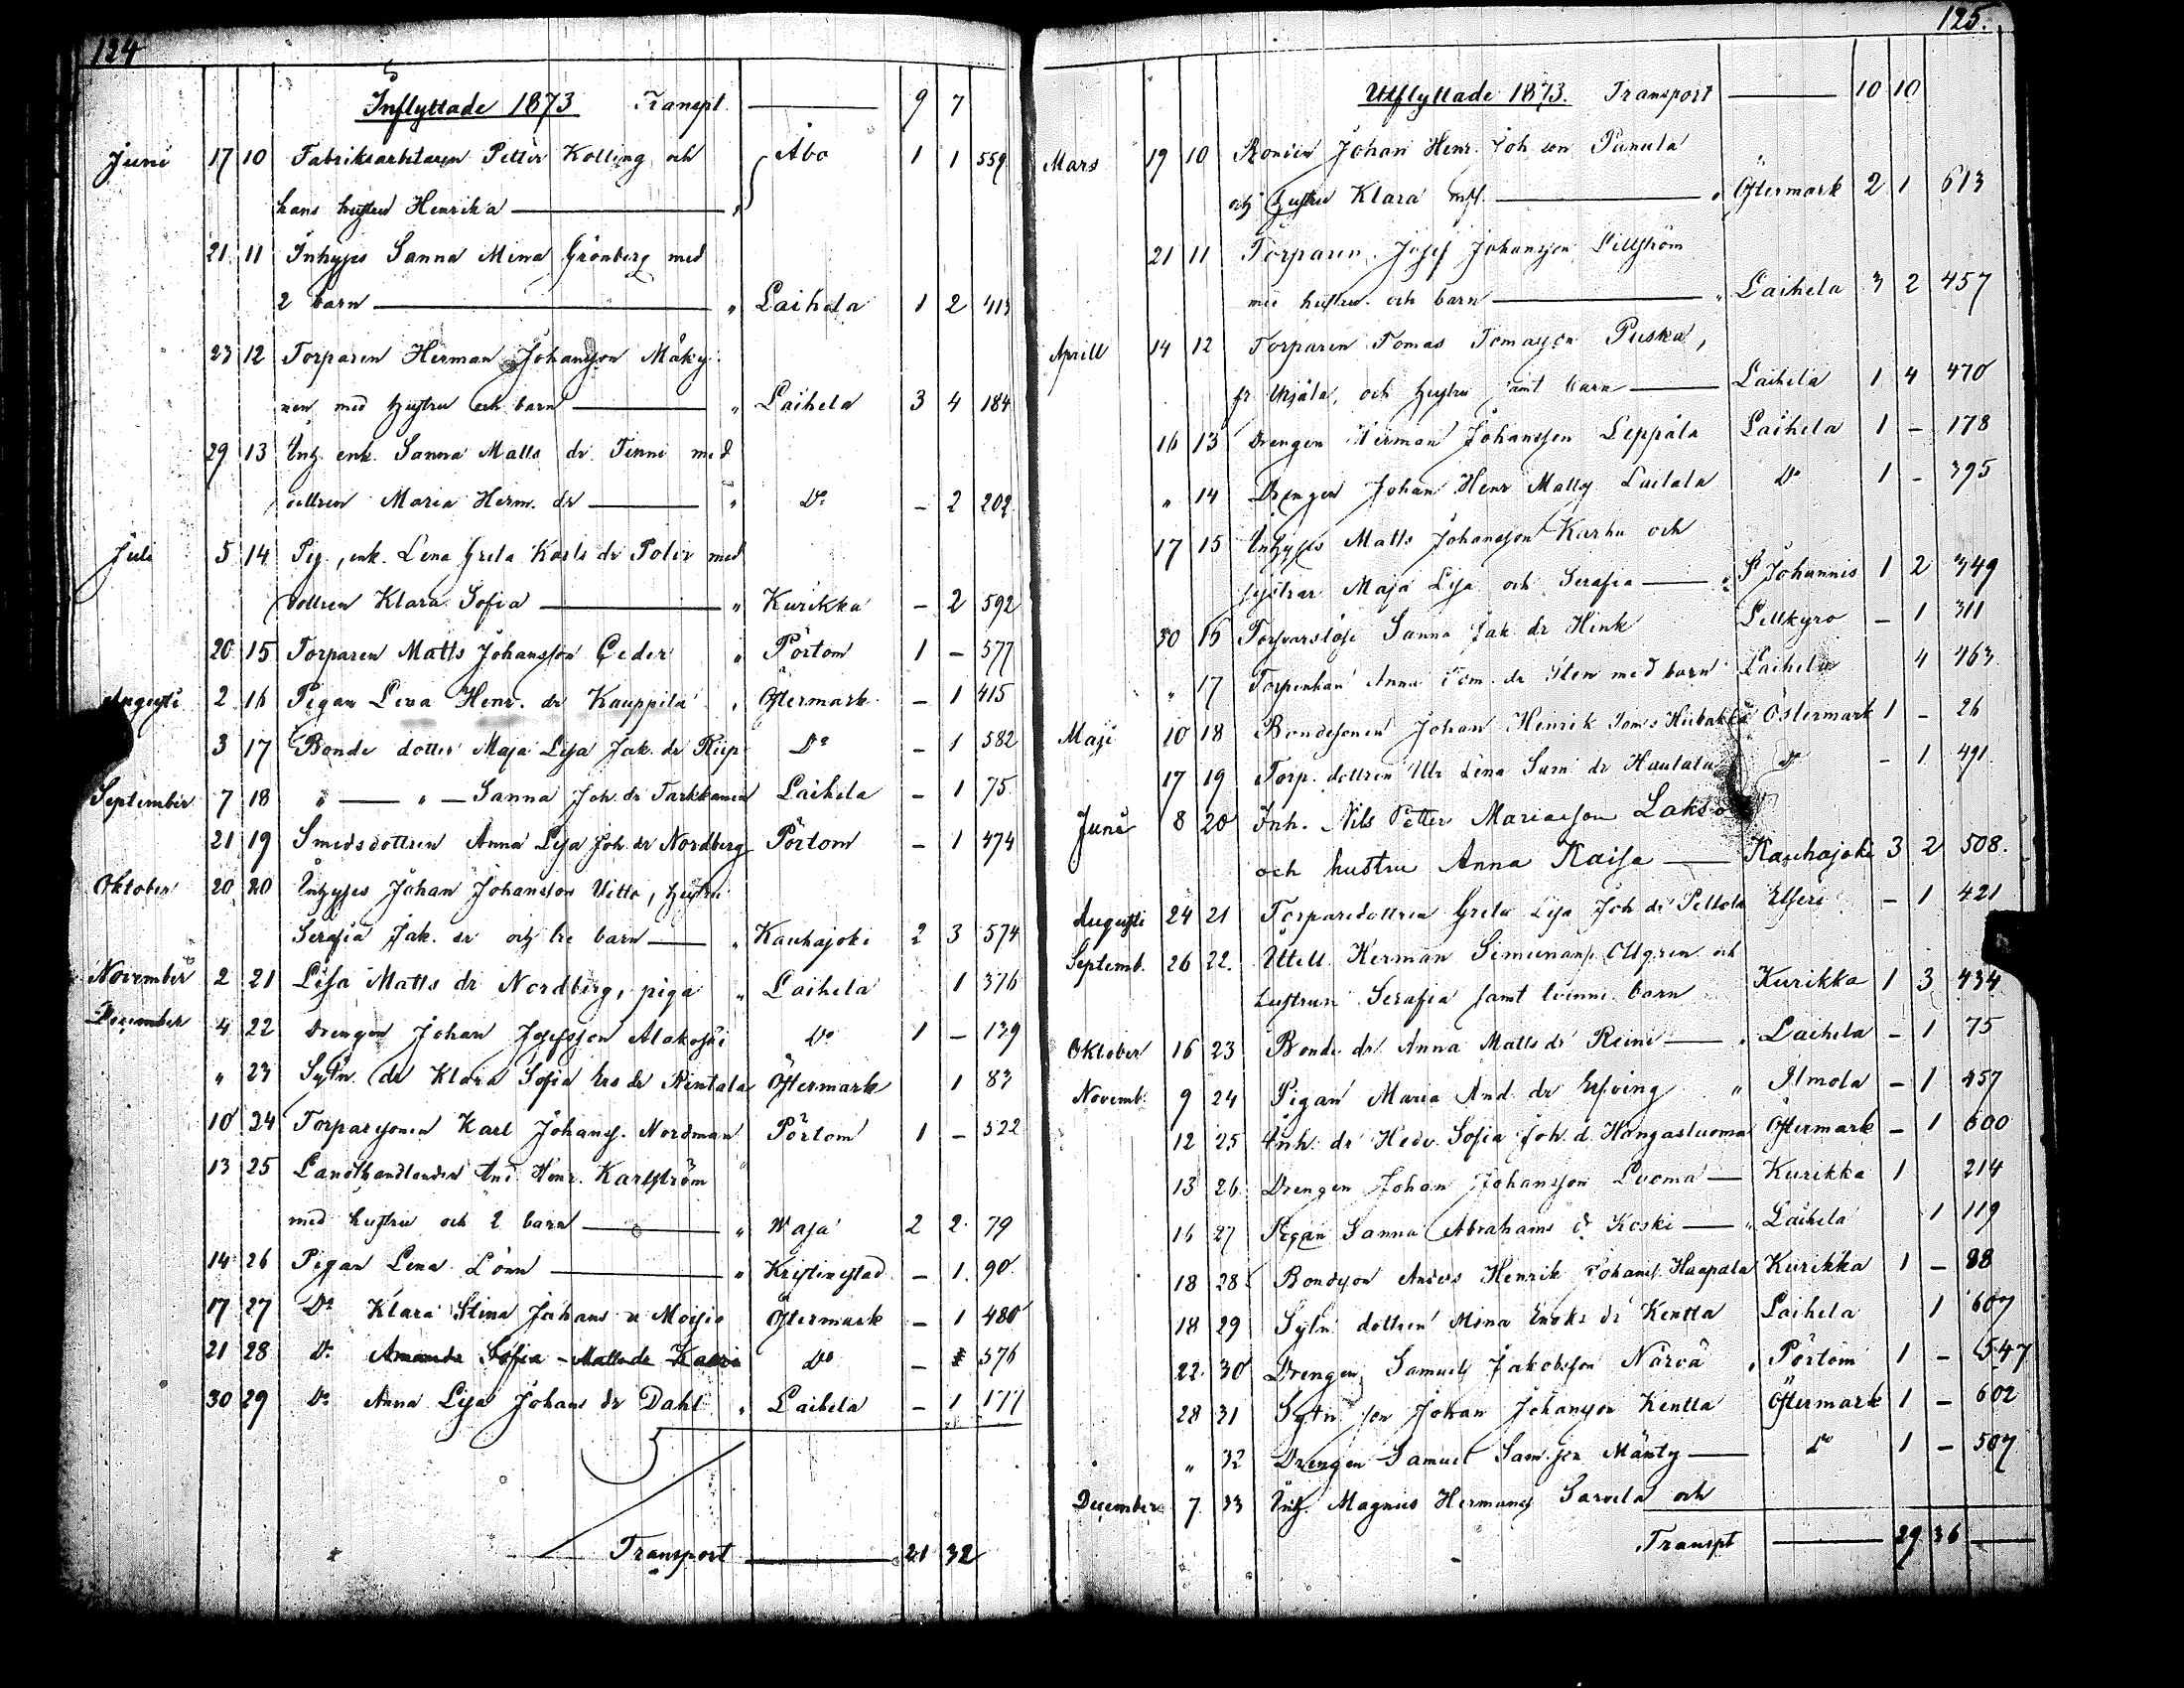 124
Inflyttade 1873 Transpt. 9 7
Juni 17 10 Fabriksarbetaren Petter Kolling och Åbo 1 1 559
hans hustru Henrika
21 11 Inhyses Sanna Mina Grönberg med
2 barn " Laihela 1 2 413
23 12 Torparen Herman Johansson Mäky-
nen med hustru och barn " Laihela 3 4 184
29 13 Inh. enk. Sanna Matts dr Finne med
dottren Maria Herm. dr " Do - 2 202
Juli 5 14 Pig., enk. Lena Greta Karls dr Poler med
dottren Klara Sofia " Kurikka - 2 592
20 15 Torparen Matts Johansson Ceder " Pörtom 1 - 577
Augusti 2 16 Pigan Leva Henr. dr Kauppila " Östermark - 1 415
3 17 Bonde dotter Maja Lisa Jak. dr Riip Do - 1 582
September 7 18 " " Sanna Joh. dr Tarkkanen Laihela - 1 75
21 19 Smedsdottren Anna Lisa Joh. dr Nordberg Pörtom - 1 474
Oktober 20 20 Inhyses Johan Johansson Vitto, hustru
Serafia Jak. dr och tre barn " Kauhajoki 2 3 574
November 2 21 Lisa Matts dr Nordberg, piga " Laihela 1 376
December 4 22 Drengen Johan Josefsson Alakoski Do 1 - 139
" 23 Sytn. dr Klara Sofia Ers dr Rintala Östermark 1 83
10 24 Torparsonen Karl Johans. Nordman Pörtom 1 - 522
13 25 Landthandlanden And. Henr. Karlström
med hustru och 2 barn " Wasa 2 2 79
14 26 Pigan Lena Lönn " Kristinestad - 1 90
17 27 Do Klara Stina Johans dr Moisio Östermark - 1 480
21 28 Do Amanda Sofia Matts dr Do - 1 576
30 29 Do Anna Lisa Johans dr Dahl " Laihela - 1 177
Transport 21 32
125.
Utflyttade 1873. Transport 10 10
Mars 19 10 Bonden Johan Henr. Joh son Panula
och hustru Klara " Östermark 2 1 613
21 11 Torparen Josef Johansson Lillström
med hustru och barn " Laihela 3 2 457
Aprill 14 12 Torparen Tomas Tomasson Puska,
fr Urjala, och hustru samt barn Laihela 1 4 470
16 13 Drengen Herman Johansson Leppälä Laihela 1 - 178
" 14 Drengen Johan Henr Matts Luilala Do 1 - 395
17 15 Inhyses Matts Johansson Karhu och
systrar Maja Lisa och Serafia " St Johannis 1 2 349
30 16 Forsvarslösa Sanna Jak dr Hink Lillkyro - 1 311
" 17 Torpenkan Anna Tom. dr Sten med barn Laihela 4 463
Maji 10 18 Bondesonen Johan Henrik Toms Östermark 1 - 26
17 19 Torp. dottren Ulr. Lena Sam. dr Hautala Do - 1 491
Juni 8 20 Inh. Nils Petter Mariasson Lakso
och hustru Anna Kaisa Kauhajoki 3 2 508.
Augusti 24 21 Torparedottren Greta Lisa Joh. dr Peltola Etseri - 1 421
Septemb. 26 22. Uttell. Herman Simunans. Ollgren och
hustrun Serafia samt tvenne barn Kurikka 1 3 434
Oktober 16 23 Bonde dr Anna Matts dr Reini " Laihela - 1 75
Novemb. 9 24 Pigan Maria And. dr Erfving " Ilmola - 1 457
12 25 Inh. dr Hedv. Sofia Joh. d. Hangasluoma Östermark - 1 600
13 26 Drengen Johan Johansson Luoma Kurikka 1 214
16 27 Pigan Sanna Abrahams dr Koski " Laihela 1 119
18 28 Bondson Anders Henrik Johans. Haapala Kurikka 1 - 88
18 29 Sytn. dottren Mina Enoks dr Kentta Laihela 1 607
22 30 Drengen Samuel Jakobsson Närvä " Pörtom 1 - 547
28 31 Sytn. son Johan Johansson Kentta Östermark 1 - 602
" 32 Drengen Samuel Sam. son Mänty Do 1 - 507
December 7 33 Inh. Magnus Hermans Sarvela och
Transpt 29 36